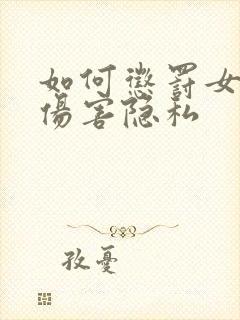 如何懲罰女
傷害隐私
孜憂